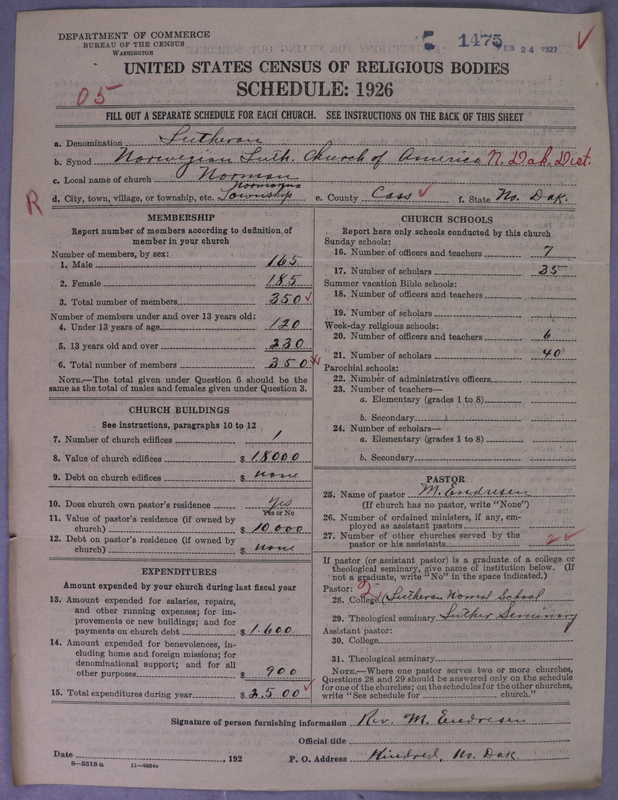 DEPARTMENT OF COMMERCE
BUREAU OF THE CENSUS
WASHINGTON
1475
FEB 24 1927
UNITED STATES CENSUS OF RELIGIOUS BODIES
SCHEDULE: 1926
05
FILL OUT A SEPARATE SCHEDULE FOR EACH CHURCH. SEE INSTRUCTIONS ON THE BACK OF THIS SHEET
a. Denomination Lutheran
b. Synod Norwegian Luth. Church of America N. Dak. Dist.
c. Local name of church Norman
R
d. City, town, village, or township, etc. Normanna Township e. County Cass f. State No. Dak.
MEMBERSHIP
Report number of members according to definition of
member in your church
Number of members, by sex:
1. Male 165
2. Female 185
3. Total number of members 350
Number of members under and over 13 years old:
4. Under 13 years of age 120
5. 13 years old and over 230
6. Total number of members 350
NOTE.—The total given under Question 6 should be the
same as the total of males and females given under Question 3.
CHURCH BUILDINGS
See instructions, paragraphs 10 to 12
7. Number of church edifices 1
8. Value of church edifices $ 18000
9. Debt on church edifices $ none
10. Does church own pastor's residence Yes
Yes or No
11. Value of pastor's residence (if owned by
church) $ 10,000
12. Debt on pastor's residence (if owned by
church) $ none
EXPENDITURES
Amount expended by your church during last fiscal year
13. Amount expended for salaries, repairs,
and other running expenses; for im-
provements or new buildings; and for
payments on church debt $ 1.600
14. Amount expended for benevolences, in-
cluding home and foreign missions; for
denominational support; and for all
other purposes $ 900
15. Total expenditures during year $ 2.500
CHURCH SCHOOLS
Report here only schools conducted by this church
Sunday schools:
16. Number of officers and teachers 7
17. Number of scholars 35
Summer vacation Bible schools:
18. Number of officers and teachers
19. Number of scholars
Week-day religious schools:
20. Number of officers and teachers 6
21. Number of scholars 40
Parochial schools:
22. Number of administrative officers
23. Number of teachers—
a. Elementary (grades 1 to 8)
b. Secondary
24. Number of scholars—
a. Elementary (grades 1 to 8)
b. Secondary
PASTOR
25. Name of pastor M. Endresen
(If church has no pastor, write "None")
26. Number of ordained ministers, if any, em-
ployed as assistant pastors
27. Number of other churches served by the
pastor or his assistants 2
If pastor (or assistant pastor) is a graduate of a college or
theological seminary, give name of institution below. (If
not a graduate, write "No" in the space indicated.)
Pastor:
28. College Lutheran Normal School
29. Theological seminary Luther Seminary
Assistant pastor:
30. College
31. Theological seminary
NOTE.—Where one pastor serves two or more churches,
Questions 28 and 29 should be answered only on the schedule
for one of the churches; on the schedules for the other churches,
write "See schedule for church."
Signature of person furnishing information Rev. M. Endresen
Official title
Date , 192 P. O. Address Kindred, No. Dak.
8—5518a 11—9034